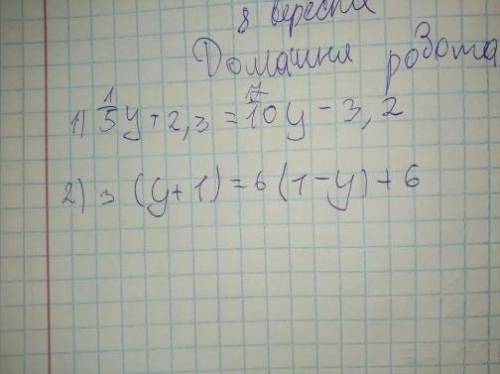 8 вересня
Домашня робота
1) 1/5 y + 2,3 = 17/10 y - 3,2
2) 3 (y+1) = 6 (1-y) + 6